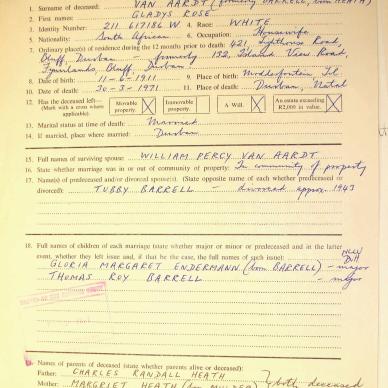 1. Surname of deceased: VAN AARDT (formerly BARRELL, born HEATH)
2. First names: GLADYS ROSE
3. Identity Number: 211 617186 W 4. Race: WHITE
5. Nationality: South African 6. Occupation: Housewife
7. Ordinary place(s) of residence during the 12 months prior to death: 421, Lighthouse Road,
Bluff, Durban formerly 132, Island View Road,
Fynnlands, Bluff, Durban
8. Date of birth: 11-6-1911 9. Place of birth: Modderfontein, Tvl.
10. Date of death: 30-3-1971 11. Place of death: Durban, Natal
12. Has the deceased left—
(Mark with a cross where applicable).
Movable property X
Immovable property
A Will. X
An estate exceeding R2,000 in value. X
13. Marital status at time of death: Married
14. If married, place where married: Durban
15. Full names of surviving spouse: WILLIAM PERCY VAN AARDT
16. State whether marriage was in or out of community of property: In community of property
17. Name(s) of predeceased and/or divorced spouse(s). (State opposite name of each whether predeceased or
divorced): TUBBY BARRELL - divorced approx. 1943
18. Full names of children of each marriage (state whether major or minor or predeceased and in the latter
event, whether they left issue and, if that be the case, the full names of such issue):
GLORIA MARGARET ENDERMANN (born BARRELL) - major
THOMAS ROY BARRELL - major
Names of parents of deceased (state whether parents alive or deceased):
Father: CHARLES RANDALL HEATH
Mother: MARGRIET HEATH (born MULDER) } both deceased